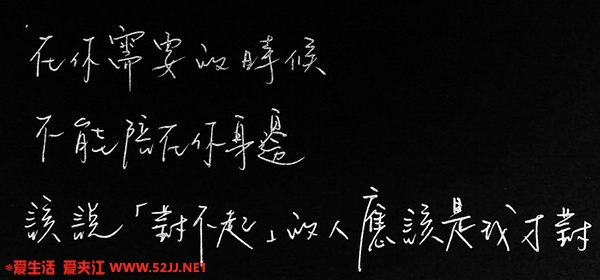 在你需要的時候
不能陪在你身邊
該說「對不起」的人應該是我才對
*爱生活 爱夹江 WWW.52JJ.NET